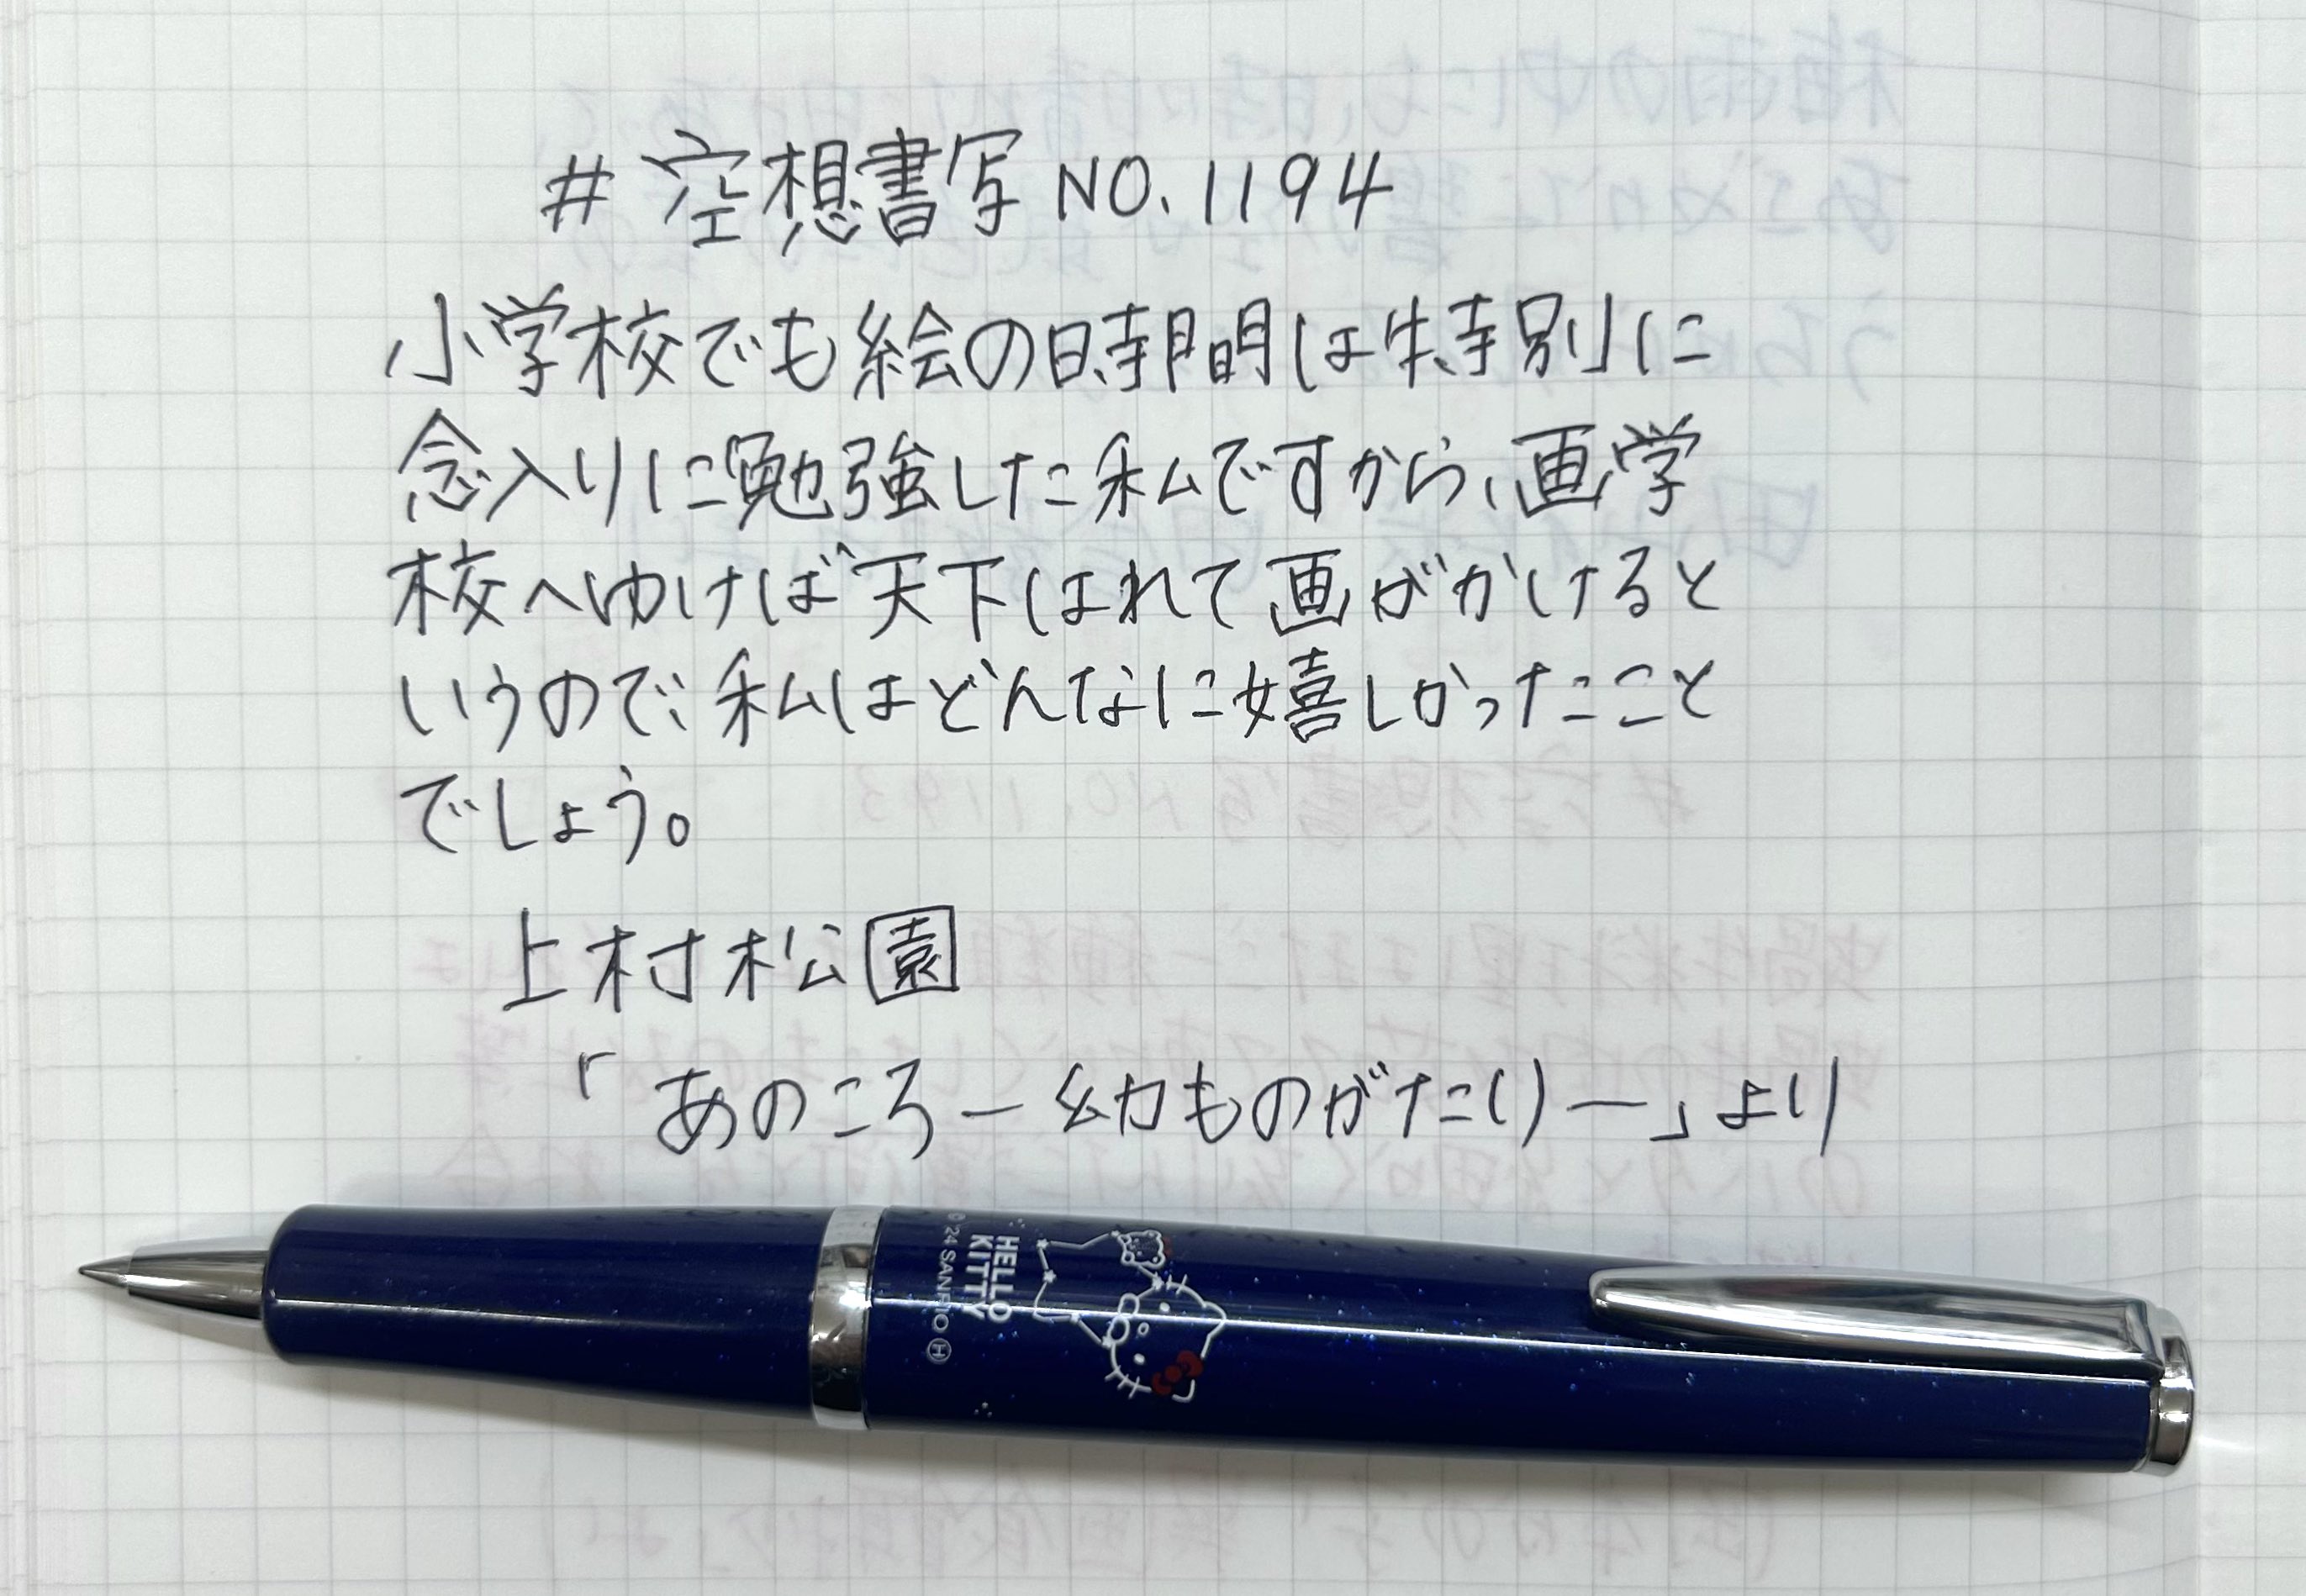 #空想書写 NO.1194
小学校でも絵の時間は特別に
念入りに勉強した私ですから、画学
校へゆけば天下はれて画がかけると
いうので、私はどんなに嬉しかったこと
でしょう。
上村松園
「あのころ―幼ものがたり―」より
HELLO
KITTY
©'24 SANRIO Ⓗ